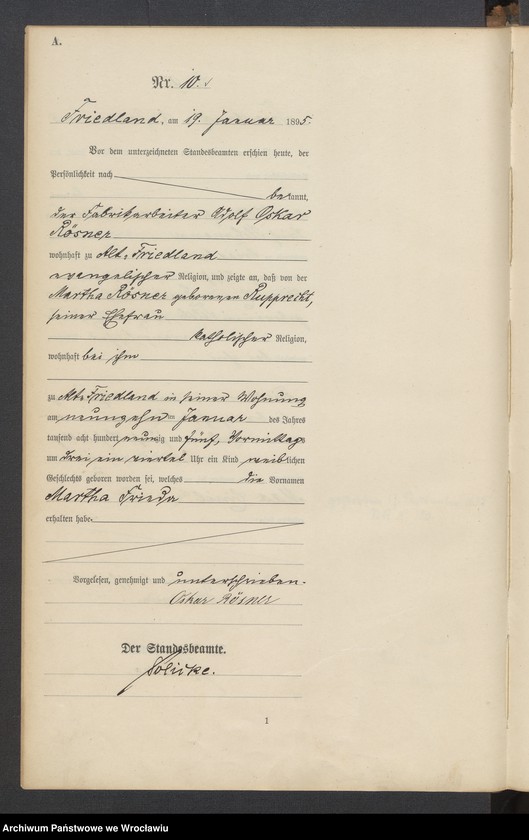 A.
Nr. 10.
Friedland, am 19. Januar 1895.
Vor dem unterzeichneten Standesbeamten erschien heute, der
Persönlichkeit nach
bekannt,
der Fabrikarbeiter Adolf Oskar
Rösner
wohnhaft zu Alt-Friedland
evangelischer Religion, und zeigte an, daß von der
Martha Rösner geborenen Rupprecht,
seiner Ehefrau
katholischer Religion,
wohnhaft bei ihm
zu Alt-Friedland in seiner Wohnung
am neunzehnten Januar des Jahres
tausend acht hundert neunzig und fünf, Vormittags
um drei ein viertel Uhr ein Kind weiblichen
Geschlechts geboren worden sei, welches die Vornamen
Martha Frieda
erhalten habe.
Vorgelesen, genehmigt und unterschrieben.
Oskar Rösner
Der Standesbeamte.
1
Archiwum Państwowe we Wrocławiu